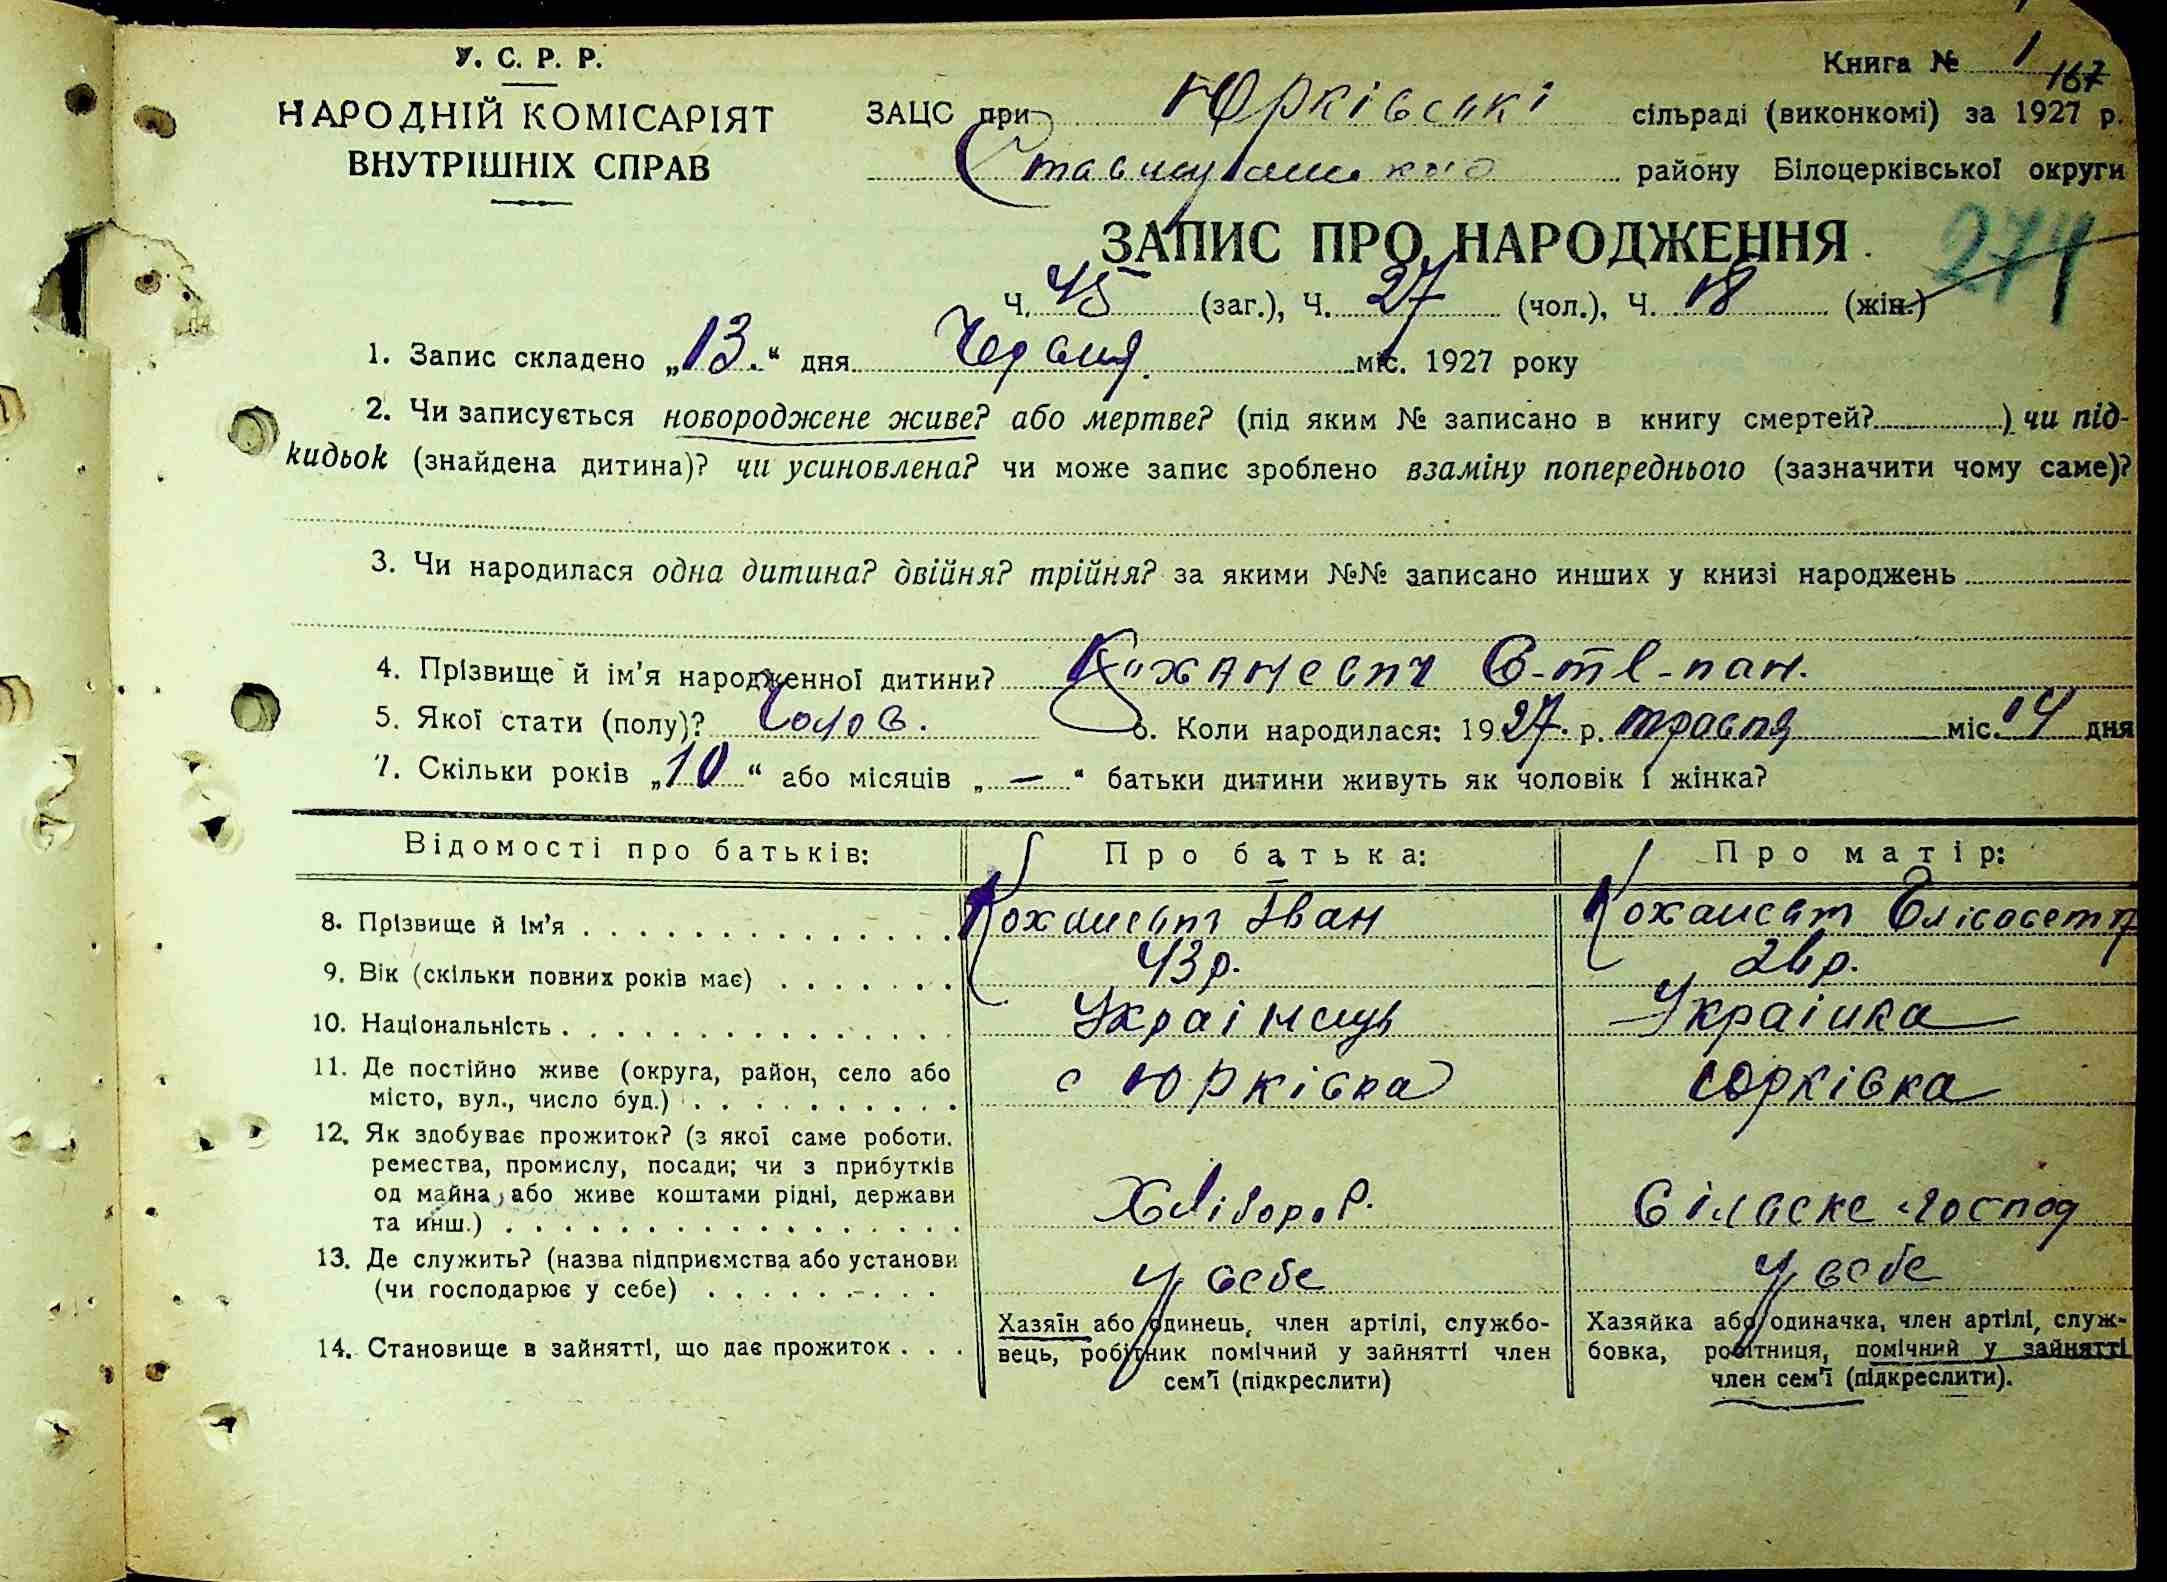 У. С. Р. Р.
НАРОДНІЙ КОМІСАРІЯТ
ВНУТРІШНІХ СПРАВ
Книга № 1
167
ЗАЦС при Юрківські сільраді (виконкомі) за 1927 р.
району Білоцерківської округи
ЗАПИС ПРО НАРОДЖЕННЯ
274
Ч. 45 (заг.), Ч. 27 (чол.), Ч. 18 (жін.)
1. Запис складено „13.“ дня Червня міс. 1927 року
2. Чи записується новороджене живе? або мертве? (під яким № записано в книгу смертей? ) чи під-
кидьок (знайдена дитина)? чи усиновлена? чи може запис зроблено взаміну попереднього (зазначити чому саме)?
3. Чи народилася одна дитина? двійня? трійня? за якими №№ записано инших у книзі народжень
4. Прізвище й ім'я народженної дитини? Коханевич
5. Якої стати (полу)? Чолов. 6. Коли народилася: 1927 р. травня міс. 14 дня
7. Скільки років „10“ або місяців „—“ батьки дитини живуть як чоловік і жінка?
Відомості про батьків: Про батька: Про матір:
8. Прізвище й ім'я Іван
9. Вік (скільки повних років має) 43 р. 26 р.
10. Національність Українець Українка
11. Де постійно живе (округа, район, село або
місто, вул., число буд.) с Юрківка Юрківка
12. Як здобуває прожиток? (з якої саме роботи.
ремества, промислу, посади; чи з прибутків
од майна, або живе коштами рідні, держави
та инш.) Хлібороб. Сільське господ
13. Де служить? (назва підприємства або установи
(чи господарює у себе) у себе у себе
14. Становище в зайнятті, що дає прожиток
Хазяїн або одинець, член артілі, службо-
вець, робітник помічний у зайнятті член
сем'ї (підкреслити)
Хазяйка або одиначка, член артілі, служ-
бовка, робітниця, помічний у зайнятті
член сем'ї (підкреслити).